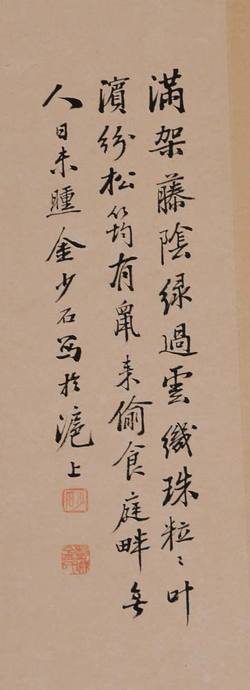 滿架藤陰綠過雲纖珠粒〻叶
濱紛松筠有鼠来偷食庭畔無
人日未曛金少石写於滬上